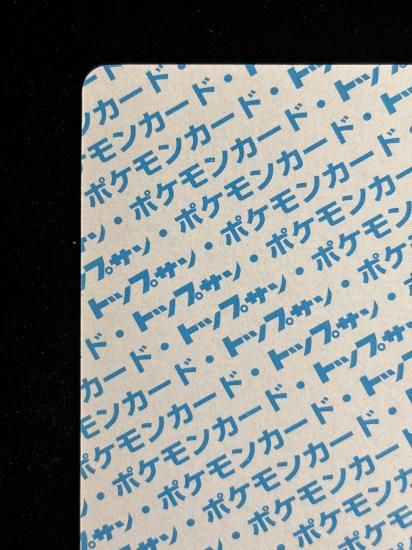 ンカード・ト
ケモンカード・トップ
ポケモンカード・トップ
・ポケモンカード・ト
ン・ポケモンカード・
プサン・ポケモンカード
トップサン・ポケモンカ
・トップサン・ポケモン
ド・トップサン・ポケ
カード・トップサン・ポ
ンカード・トップサン・
モンカード・トップサン
ポケモンカード・トップ
・ポケモンカード・ト
サン・ポケモンカード・
トップサン・ポケモンカ